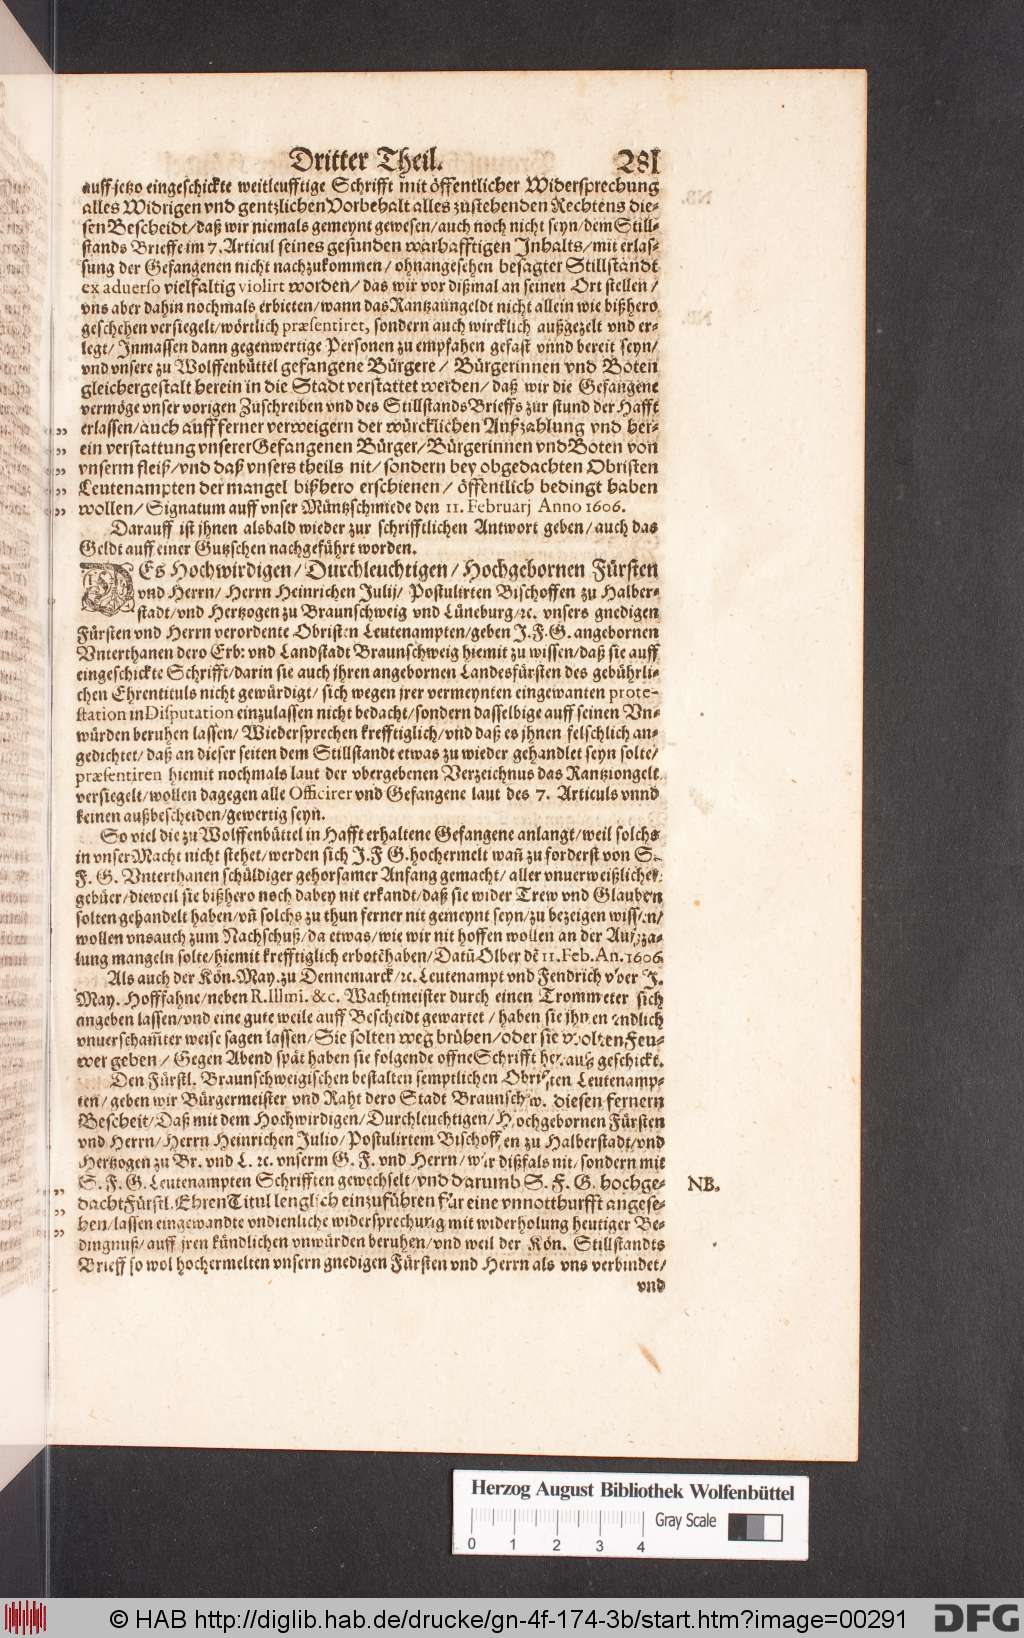 Dritter Theil. 281
auff jetzo eingeschickte weitleufftige Schrifft mit öffentlicher Widersprechung
alles Widrigen vnd gentzlichen Vorbehalt alles zustehenden Rechtens die-
sen Bescheidt/daß wir niemals gemeynt gewesen/auch noch nicht seyn/dem Still-
stands Brieffe im 7. Articul seines gesunden warhafftigen Inhalts/mit erlas-
sung der Gefangenen nicht nachzukommen/ ohnangesehen besagter Stillstandt
ex aduerso vielfaltig violirt worden/ das wir vor dißmal an seinen Ort stellen/
vns aber dahin nochmals erbieten/wann das Rantzaungeldt nicht allein wie bißhero
geschehen versiegelt/wörtlich præsentiret, sondern auch wircklich außgezelt vnd er-
legt/ Inmassen dann gegenwertige Personen zu empfahen gefast vnnd bereit seyn/
vnd vnsere zu Wolffenbüttel gefangene Bürgere/ Bürgerinnen vnd Boten
gleichergestalt herein in die Stadt verstattet werden/ daß wir die Gefangene
vermöge vnser vorigen Zuschreiben vnd des Stillstands Brieffs zur stund der Hafft
„ erlassen/auch auff ferner verweigern der würcklichen Außzahlung vnd her-
„ ein verstattung vnserer Gefangenen Bürger/Bürgerinnen vnd Boten von
„ vnserm fleiß/vnd daß vnsers theils nit/sondern bey obgedachten Obristen
„ Leutenampten der mangel bißhero erschienen/ öffentlich bedingt haben
„ wollen/ Signatum auff vnser Müntzschmiede den 11. Februarj Anno 1606.
Darauff ist jhnen alsbald wieder zur schrifftlichen Antwort geben/auch das
Geldt auff einer Gutzschen nachgeführt worden.
DEs Hochwirdigen/ Durchleuchtigen/ Hochgebornen Fürsten
vnd Herrn/ Herrn Heinrichen Julij/ Postulirten Bischoffen zu Halber-
stadt/vnd Hertzogen zu Braunschweig vnd Lüneburg/ꝛc. vnsers gnedigen
Fürsten vnd Herrn verordente Obristen Leutenampten/geben J.F.G. angebornen
Vnterthanen dero Erb: vnd Landstadt Braunschweig hiemit zu wissen/daß sie auff
eingeschickte Schrifft/darin sie auch jhren angebornen Landesfürsten des gebührli-
chen Ehrentituls nicht gewürdigt/ sich wegen jrer vermeynten eingewanten prote-
station in Disputation einzulassen nicht bedacht/sondern dasselbige auff seinen Vn-
würden beruhen lassen/ Wiedersprechen krefftiglich/vnd daß es jhnen felschlich an-
gedichtet/ daß an dieser seiten dem Stillstandt etwas zu wieder gehandlet seyn solte/
præsentiren hiemit nochmals laut der vbergebenen Verzeichnus das Rantziongelt
versiegelt/wollen dagegen alle Officirer vnd Gefangene laut des 7. Articuls vnnd
keinen außbescheiden/gewertig seyn.
So viel die zu Wolffenbüttel in Hafft erhaltene Gefangene anlangt/weil solchs
in vnser Macht nicht stehet/werden sich J.F G. hochermelt wañ zu forderst von S.
F. G. Vnterthanen schüldiger gehorsamer Anfang gemacht/ aller vnuerweißlicher
gebüer/dieweil sie bißhero noch dabey nit erkandt/daß sie wider Trew vnd Glauben
solten gehandelt haben/vñ solchs zu thun ferner nit gemeynt seyn/zu bezeigen wissen/
wollen vns auch zum Nachschuß/da etwas/wie wir nit hoffen wollen an der Außza-
lung mangeln solte/hiemit krefftiglich erbotẽ haben/Datũ Olber dẽ 11. Feb. An. 1606
Als auch der Kön. May. zu Dennemarck/ꝛc. Leutenampt vnd Fendrich vber J.
May. Hofffahne/neben R. Illmi. &c. Wachtmeister durch einen Trommeter sich
angeben lassen/vnd eine gute weile auff Bescheidt gewartet/ haben sie jhnen endlich
vnuerschaͤmter weise sagen lassen/Sie solten weg brühen/oder sie wolten Feu-
wer geben/ Gegen Abend spät haben sie folgende offne Schrifft herauß geschickt.
Den Fürstl. Braunschweigischen bestalten semptlichen Obristen Leutenamp-
ten/geben wir Bürgermeister vnd Raht dero Stadt Braunschw. diesen fernern
Bescheit/Daß mit dem Hochwirdigen/Durchleuchtigen/ Hochgebornen Fürsten
vnd Herrn/Herrn Heinrichen Julio/Postulirtem Bischoffen zu Halberstadt/vnd
Hertzogen zu Br. vnd L. ꝛc. vnserm G. F. vnd Herrn/wir dißfals nit/sondern mit
„ S. F. G. Leutenampten Schrifften gewechselt/vnd darumb S. F. G. hochge- NB.
„ dacht Fürstl. Ehren Titul lenglich einzuführen für eine vnnotthurfft angese-
„ hen/lassen eingewandte vndienliche widersprechung mit widerholung heutiger Be-
dingnuß/auff jren kündlichen vnwürden beruhen/vnd weil der Kön. Stillstandts
Brieff so wol hochermelten vnsern gnedigen Fürsten vnd Herrn als vns verbindet/
vnd
Herzog August Bibliothek Wolfenbüttel
0 1 2 3 4 Gray Scale
© HAB http://diglib.hab.de/drucke/gn-4f-174-3b/start.htm?image=00291 DFG